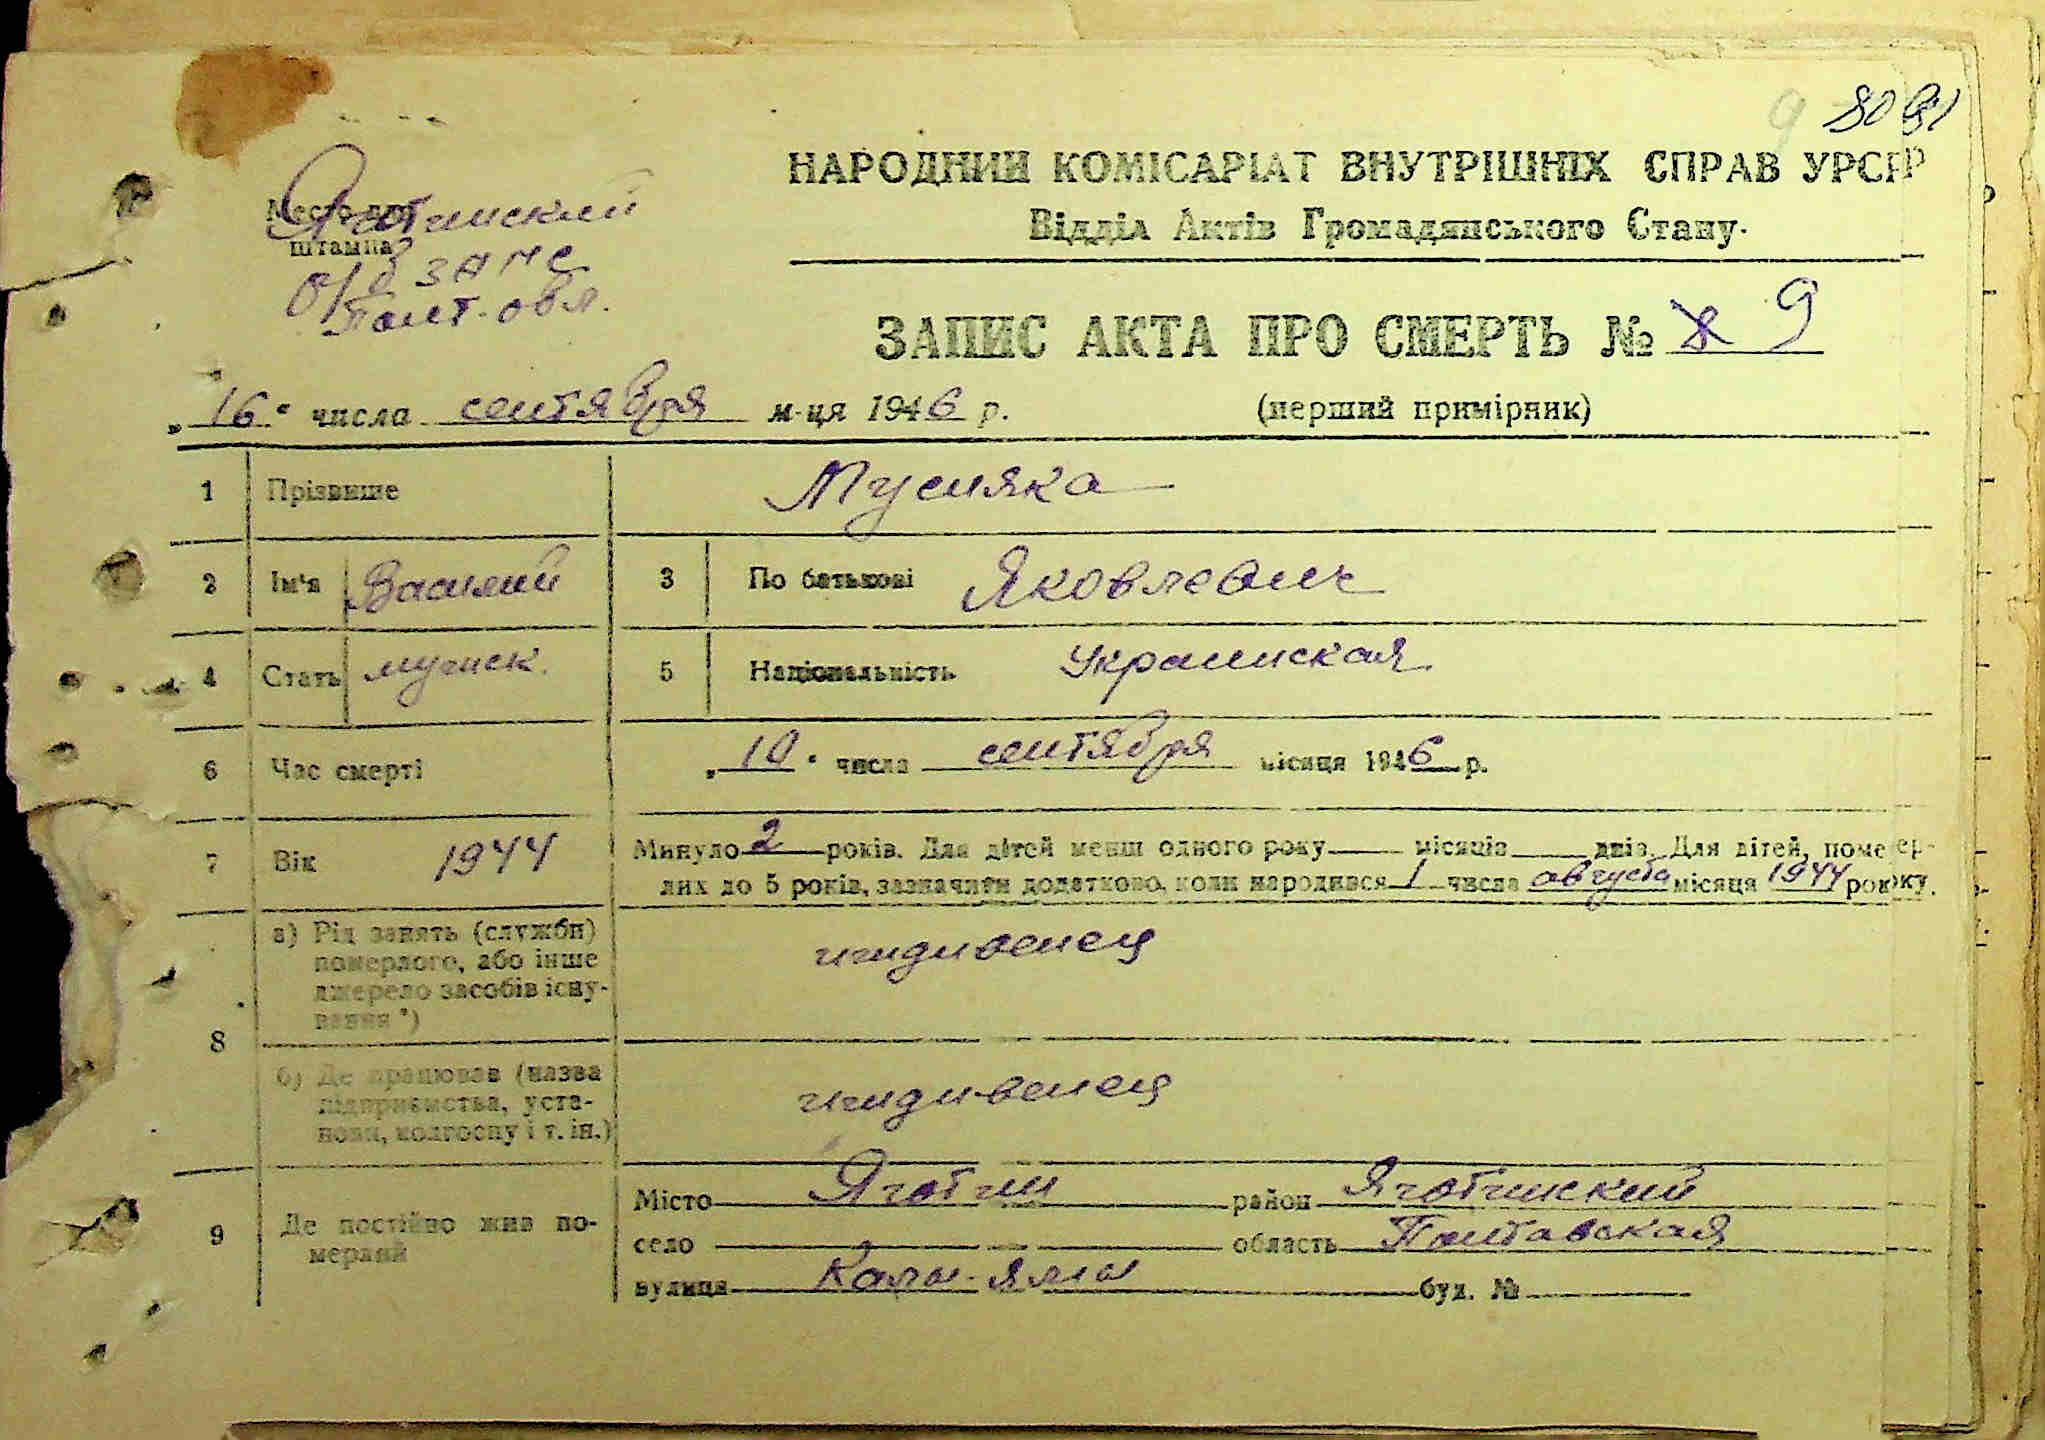 9 80 91
НАРОДНИЙ КОМІСАРІАТ ВНУТРІШНІХ СПРАВ УРСР
Відділ Актів Громадянського Стану.
Место для штампа
Яготинский
о/б ЗАГС
Полт. обл.
ЗАПИС АКТА ПРО СМЕРТЬ № 8 9
„16“ числа сентября м-ця 1946 р.
(перший примірник)
1 Прізвище Мусияка
2 Ім'я Василий 3 По батькові Яковлевич
4 Стать мужск. 5 Національність Украинская
6 Час смерті „10“ числа сентября місяця 1946 р.
7 Вік 1944 Минуло 2 років. Для дітей менш одного року місяців днів. Для дітей, помер-
лих до 5 років, зазначити додатково, коли народився 1 числа августа місяця 1944 року.
8 а) Рід занять (служби)
померлого, або інше
джерело засобів існу-
вання *)
иждивенец
б) Де працював (назва
підприємства, уста-
нови, колгоспу і т. ін.)
иждивенец
9 Де постійно жив по-
мерлий
Місто Яготин район Яготинский
село область Полтавская
вулиця буд. №